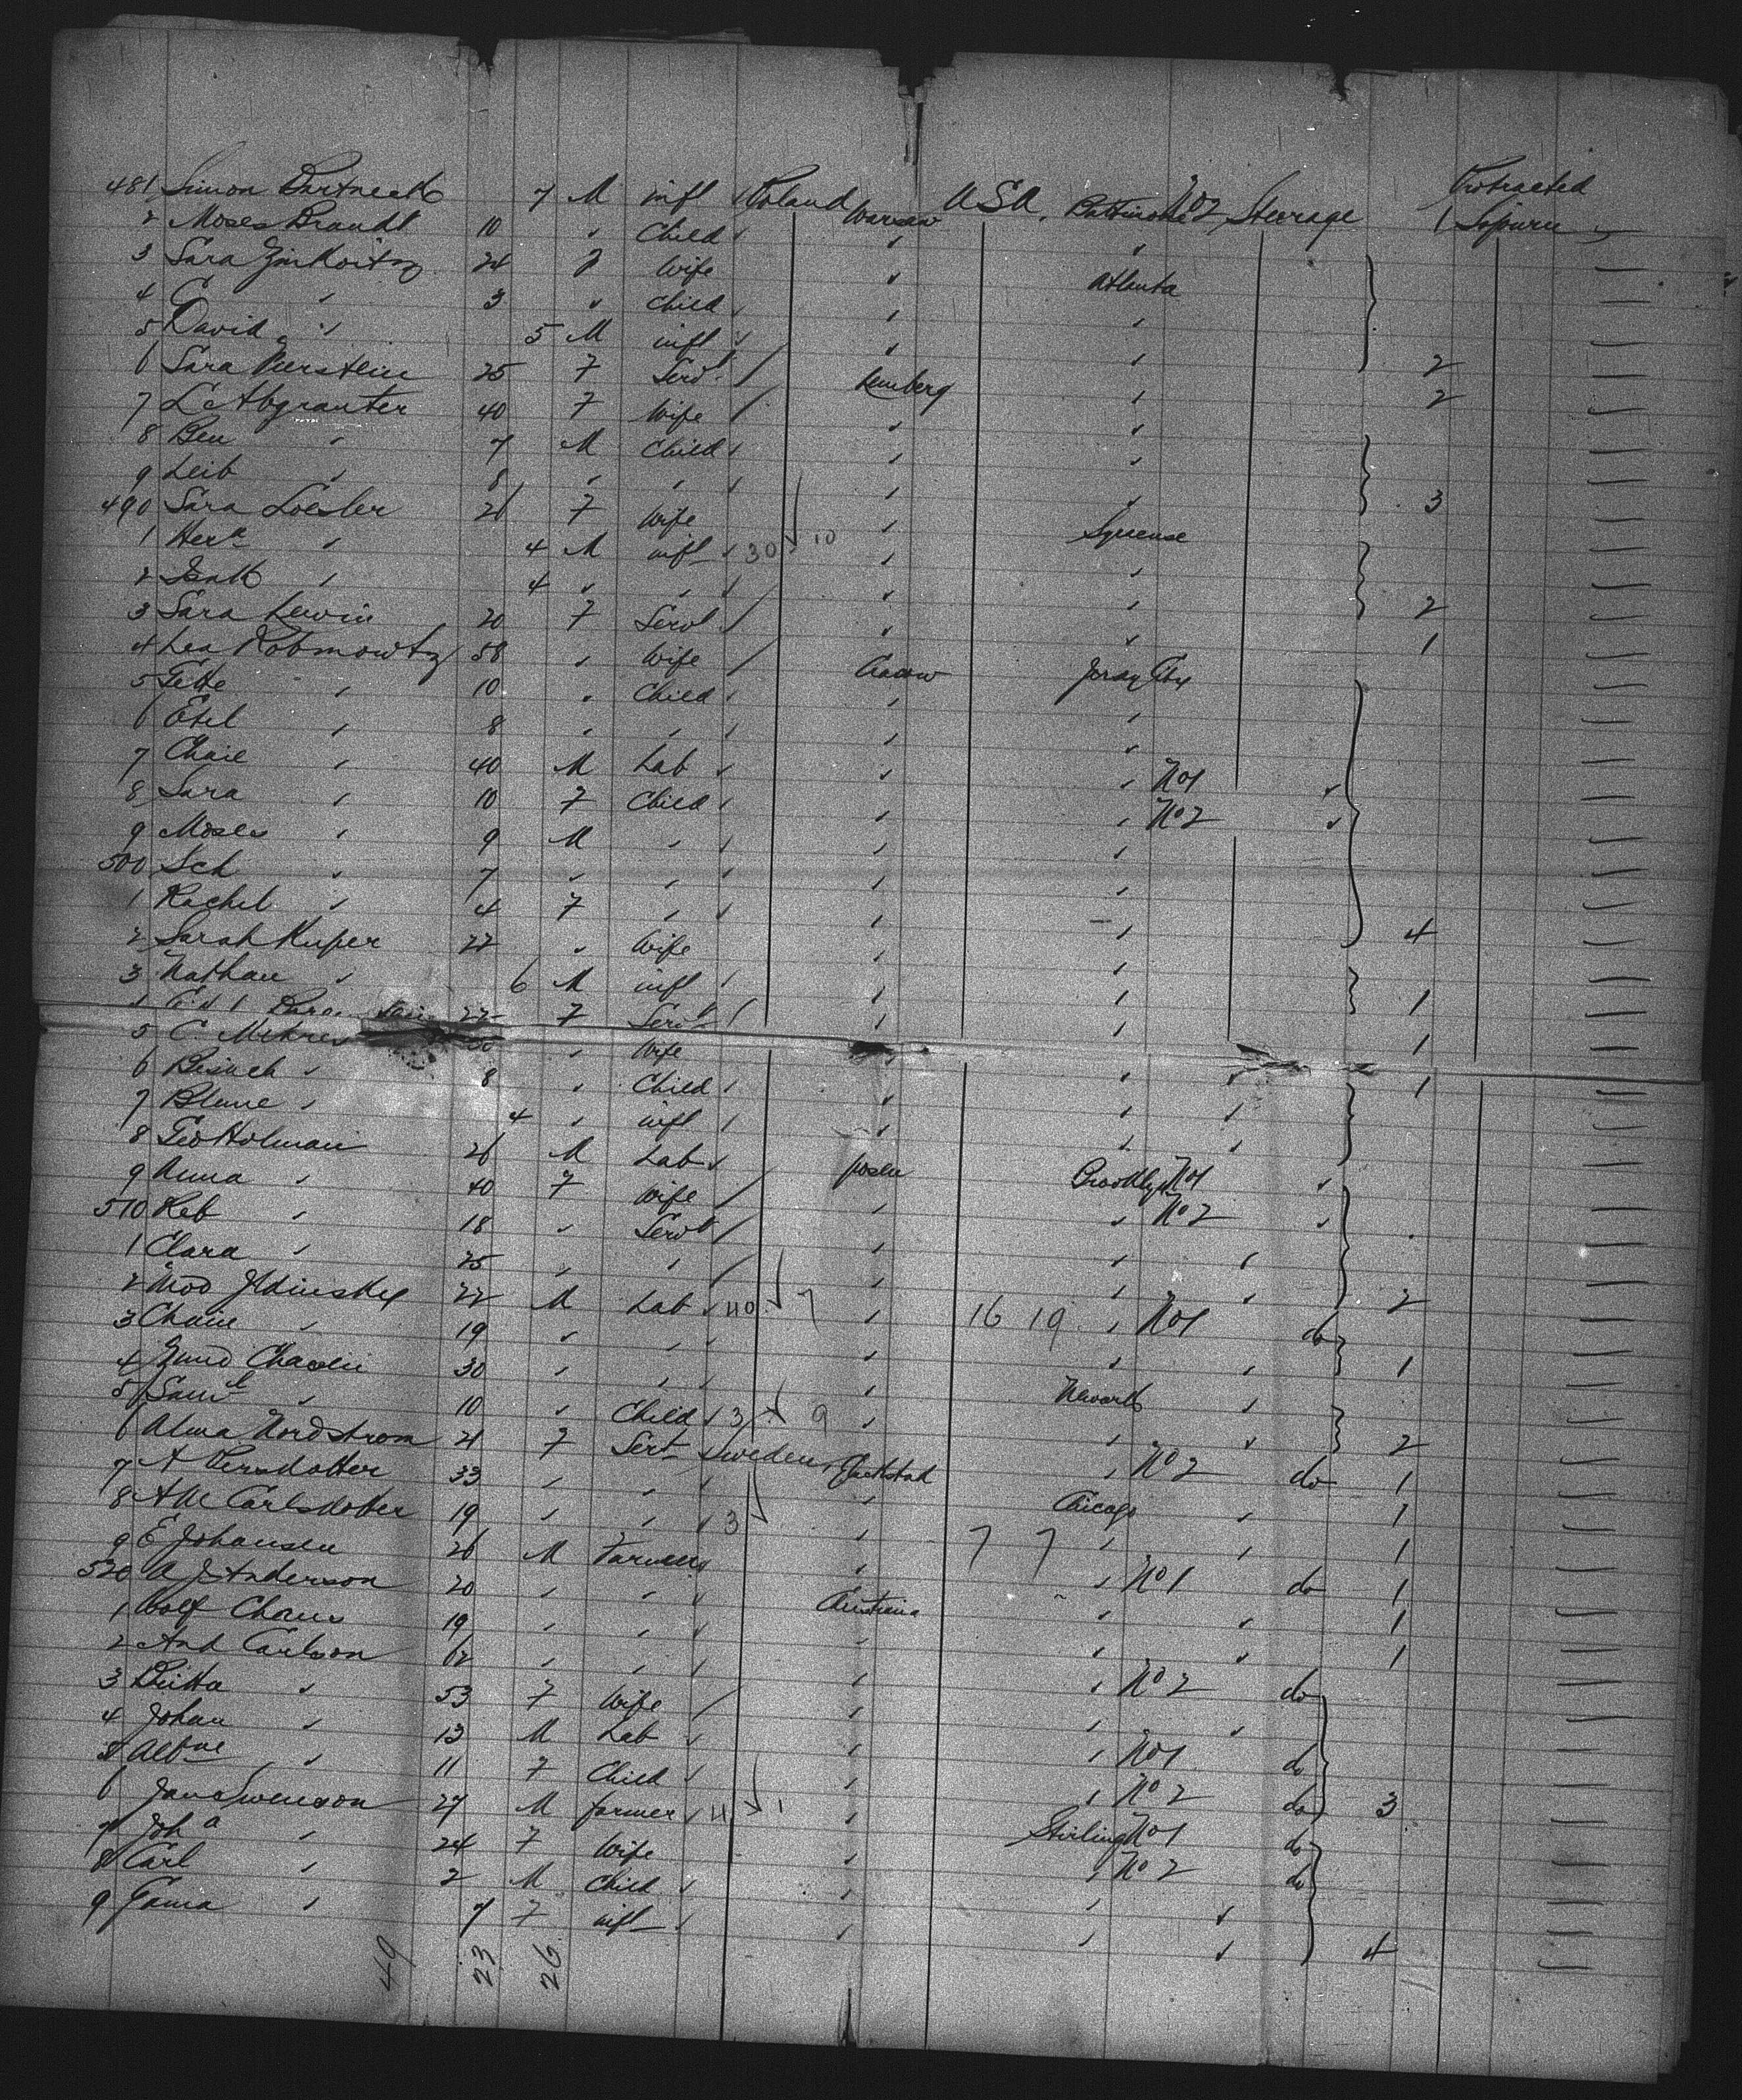 481 Simon Bartneck 7 M infl Poland Warsaw USA. Baltimore No 2 Steerage Protracted
2 Moses Brandt 10 " Child " " 1 Sojourn
3 Sara 24 F Wife " Atlanta
4 C " 3 " Child " "
5 David " 5 M infl " "
6 Sara 25 F Servt Lemberg " 2
7 40 F Wife " " 2
8 Ben " 7 M Child " "
9 Leib " 8 " " " " 3
490 Sara Loesler 26 F Wife " Syreuse
1 Hern " 4 M infl 30 10 " "
2 Isak " 4 " " " " 2
3 Sara Lewin 20 F Servt " " 1
4 Lea Robmowtz 58 " Wife Jersey City
5 Tette " 10 " Child " "
6 Etel " 8 " " " "
7 Chaie " 40 M Lab " " No 1 "
8 Sara " 10 F Child " " No 2 "
9 Moses " 9 M " " "
500 Sch " 7 " " " "
1 Rachel " 4 F " " " 4
2 Sarah Kuper 22 " Wife " "
3 Nathan " 6 M infl " " 1
4 22 F Servt " " 1
5 C. " Wife " " " 1
6 " 8 " Child " " "
7 Blume " 4 " infl " " "
8 Geo Holman 26 M Lab Posen Brooklyn No 1 "
9 Anna " 40 F Wife " " No 2 "
510 Reb " 18 " Servt " " "
1 Clara " 25 " " " " " 2
2 Mod 22 M Lab 40 7 " 16 19 " No 1 do
3 Chaie " 19 " " " " " 1
4 30 " " " Newark "
5 Saml " 10 " Child 3 9 " " " 2
6 Alma Nordstrom 21 F Sert Sweden " No 2 do 1
7 A Persdotter 33 " " " Chicago " 1
8 A M Carlsdotter 19 " " 3 " 7 7 " " 1
9 E Johansen 26 M Farmer " " No 1 do 1
520 A J Anderson 20 " " " " 1
1 Wolf 19 " " " " " 1
2 And Carlson 62 " " " " No 2 do
3 Britta " 53 F Wife " " "
4 Johan " 13 M Lab " " No 1 do
5 Albne " 11 F Child " " No 2 do 3
6 Jan Swenson 27 M farmer 4 1 " Stirling No 1 do
7 Joha " 24 F Wife " " No 2 do
8 Carl " 2 M Child " " "
9 " 7 F infl " " " 4
49 23 26